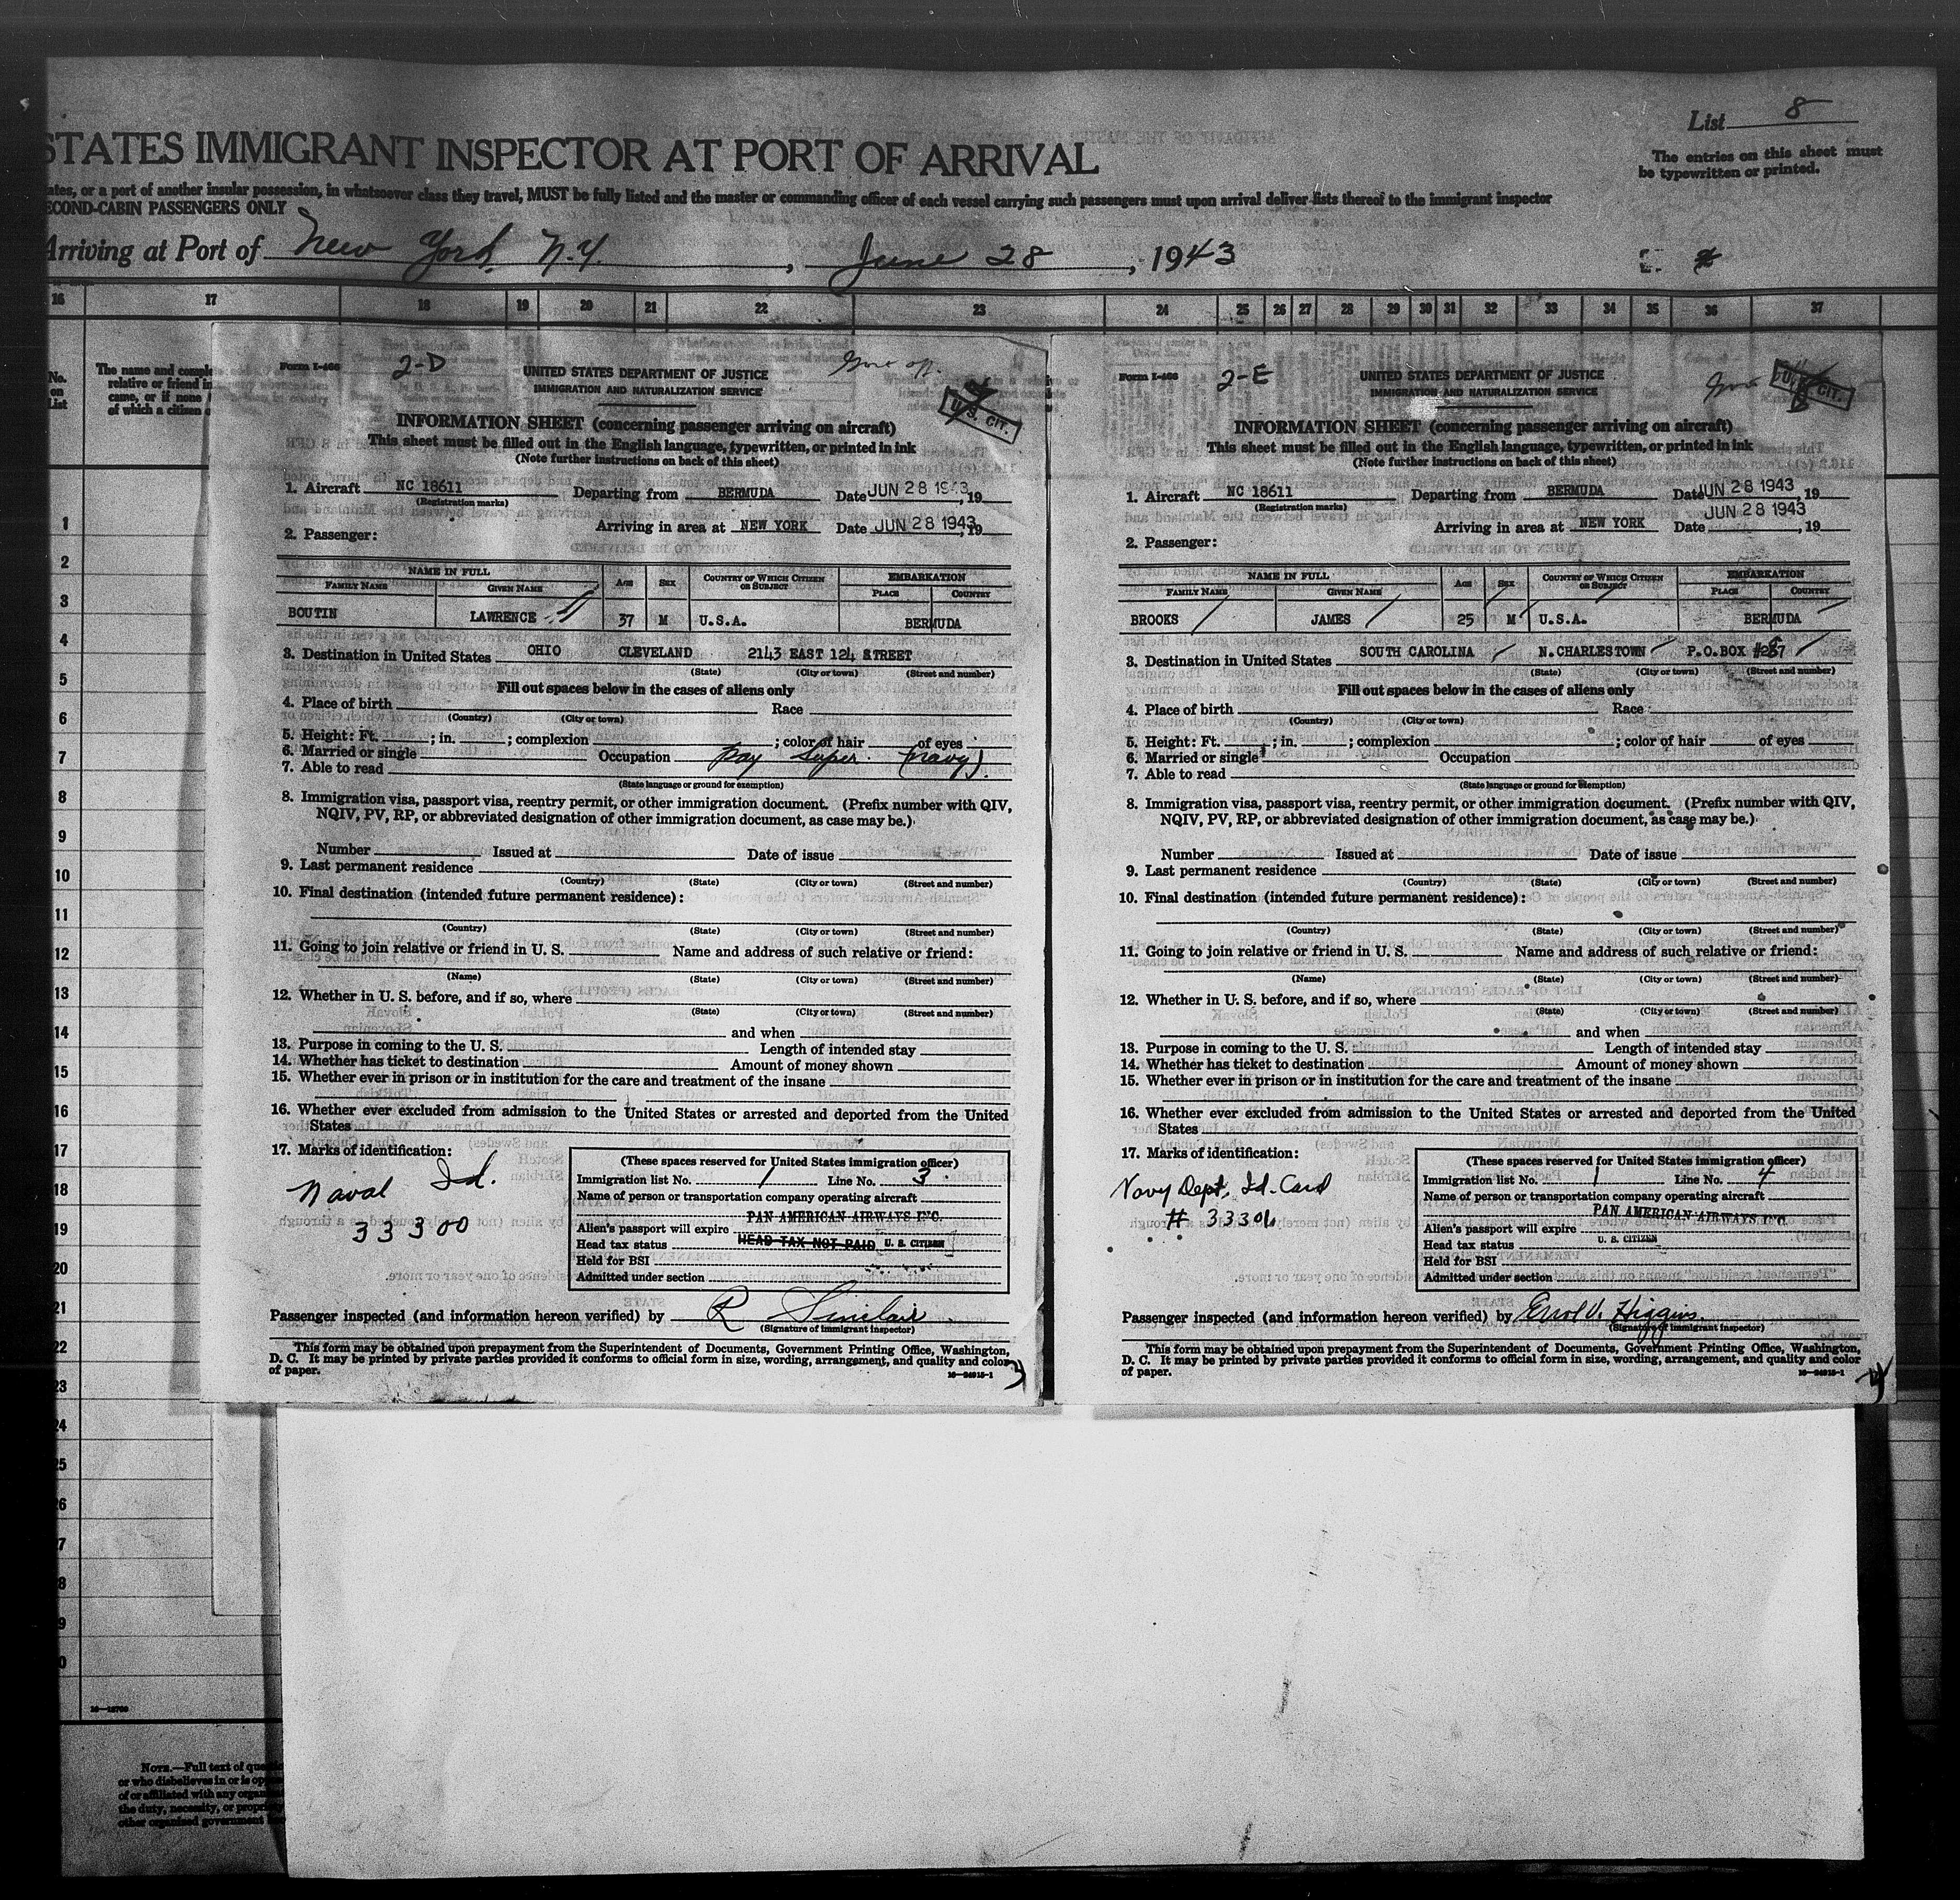 List 8
STATES IMMIGRANT INSPECTOR AT PORT OF ARRIVAL
The entries on this sheet must
be typewritten or printed.
ates, or a port of another insular possession, in whatsoever class they travel, MUST be fully listed and the master or commanding officer of each vessel carrying such passengers must upon arrival deliver lists thereof to the immigrant inspector
ECOND-CABIN PASSENGERS ONLY
Arriving at Port of New York, N.Y. , June 28 , 1943
16 17 18 19 20 21 22 23 24 25 26 27 28 29 30 31 32 33 34 35 36 37
No.
on
List
The name and comple
relative or friend in
came, or if none
of which a citizen
Form I-466
2-D
UNITED STATES DEPARTMENT OF JUSTICE
IMMIGRATION AND NATURALIZATION SERVICE
U.S. CIT.
INFORMATION SHEET (concerning passenger arriving on aircraft)
This sheet must be filled out in the English language, typewritten, or printed in ink
(Note further instructions on back of this sheet)
1. Aircraft NC 18611 Departing from BERMUDA Date JUN 28 1943, 19
(Registration marks)
Arriving in area at NEW YORK Date JUN 28 1943, 19
2. Passenger:
NAME IN FULL AGE SEX COUNTRY OF WHICH CITIZEN OR SUBJECT EMBARKATION
FAMILY NAME GIVEN NAME PLACE COUNTRY
BOUTIN LAWRENCE 37 M U.S.A. BERMUDA
3. Destination in United States OHIO CLEVELAND 2143 EAST 124 STREET
(State) (City or town) (Street and number)
Fill out spaces below in the cases of aliens only
4. Place of birth Race
(Country) (City or town)
5. Height: Ft. ; in. ; complexion ; color of hair of eyes
6. Married or single Occupation Pay Super. (Navy).
7. Able to read
(State language or ground for exemption)
8. Immigration visa, passport visa, reentry permit, or other immigration document. (Prefix number with QIV,
NQIV, PV, RP, or abbreviated designation of other immigration document, as case may be.)
Number Issued at Date of issue
9. Last permanent residence
(Country) (State) (City or town) (Street and number)
10. Final destination (intended future permanent residence):
(Country) (State) (City or town) (Street and number)
11. Going to join relative or friend in U. S. Name and address of such relative or friend:
(Name) (State) (City or town) (Street and number)
12. Whether in U. S. before, and if so, where
(State) (City or town) (Street and number)
and when
13. Purpose in coming to the U. S. Length of intended stay
14. Whether has ticket to destination Amount of money shown
15. Whether ever in prison or in institution for the care and treatment of the insane
16. Whether ever excluded from admission to the United States or arrested and deported from the United
States
17. Marks of identification:
Naval Id.
33300
(These spaces reserved for United States immigration officer)
Immigration list No. 1 Line No. 3
Name of person or transportation company operating aircraft
PAN AMERICAN AIRWAYS INC.
Alien's passport will expire
Head tax status HEAD TAX NOT PAID U. S. CITIZEN
Held for BSI
Admitted under section
Passenger inspected (and information hereon verified) by R Sinclair
(Signature of immigrant inspector)
This form may be obtained upon prepayment from the Superintendent of Documents, Government Printing Office, Washington,
D. C. It may be printed by private parties provided it conforms to official form in size, wording, arrangement, and quality and color
of paper.
16—24915-1
3
Form I-466
2-E
UNITED STATES DEPARTMENT OF JUSTICE
IMMIGRATION AND NATURALIZATION SERVICE
U.S. CIT.
INFORMATION SHEET (concerning passenger arriving on aircraft)
This sheet must be filled out in the English language, typewritten, or printed in ink
(Note further instructions on back of this sheet)
1. Aircraft NC 18611 Departing from BERMUDA Date JUN 28 1943, 19
(Registration marks)
Arriving in area at NEW YORK Date JUN 28 1943, 19
2. Passenger:
NAME IN FULL AGE SEX COUNTRY OF WHICH CITIZEN OR SUBJECT EMBARKATION
FAMILY NAME GIVEN NAME PLACE COUNTRY
BROOKS JAMES 25 M U.S.A. BERMUDA
3. Destination in United States SOUTH CAROLINA N. CHARLESTOWN P.O.BOX #287
(State) (City or town) (Street and number)
Fill out spaces below in the cases of aliens only
4. Place of birth Race
(Country) (City or town)
5. Height: Ft. ; in. ; complexion ; color of hair of eyes
6. Married or single Occupation
7. Able to read
(State language or ground for exemption)
8. Immigration visa, passport visa, reentry permit, or other immigration document. (Prefix number with QIV,
NQIV, PV, RP, or abbreviated designation of other immigration document, as case may be.)
Number Issued at Date of issue
9. Last permanent residence
(Country) (State) (City or town) (Street and number)
10. Final destination (intended future permanent residence):
(Country) (State) (City or town) (Street and number)
11. Going to join relative or friend in U. S. Name and address of such relative or friend:
(Name) (State) (City or town) (Street and number)
12. Whether in U. S. before, and if so, where
(State) (City or town) (Street and number)
and when
13. Purpose in coming to the U. S. Length of intended stay
14. Whether has ticket to destination Amount of money shown
15. Whether ever in prison or in institution for the care and treatment of the insane
16. Whether ever excluded from admission to the United States or arrested and deported from the United
States
17. Marks of identification:
Navy Dept. Id. Card
# 33304
(These spaces reserved for United States immigration officer)
Immigration list No. 1 Line No. 4
Name of person or transportation company operating aircraft
PAN AMERICAN AIRWAYS INC.
Alien's passport will expire
Head tax status U. S. CITIZEN
Held for BSI
Admitted under section
Passenger inspected (and information hereon verified) by Errol V. Higgins
(Signature of immigrant inspector)
This form may be obtained upon prepayment from the Superintendent of Documents, Government Printing Office, Washington,
D. C. It may be printed by private parties provided it conforms to official form in size, wording, arrangement, and quality and color
of paper.
16—24915-1
4
1
2
3
4
5
6
7
8
9
10
11
12
13
14
15
16
17
18
19
20
21
22
23
24
25
26
27
8
9
0
NOTE.—Full text of ques
or who disbelieves in or is opp
of or affiliated with any organi
the duty, necessity, or propriety
other organized government